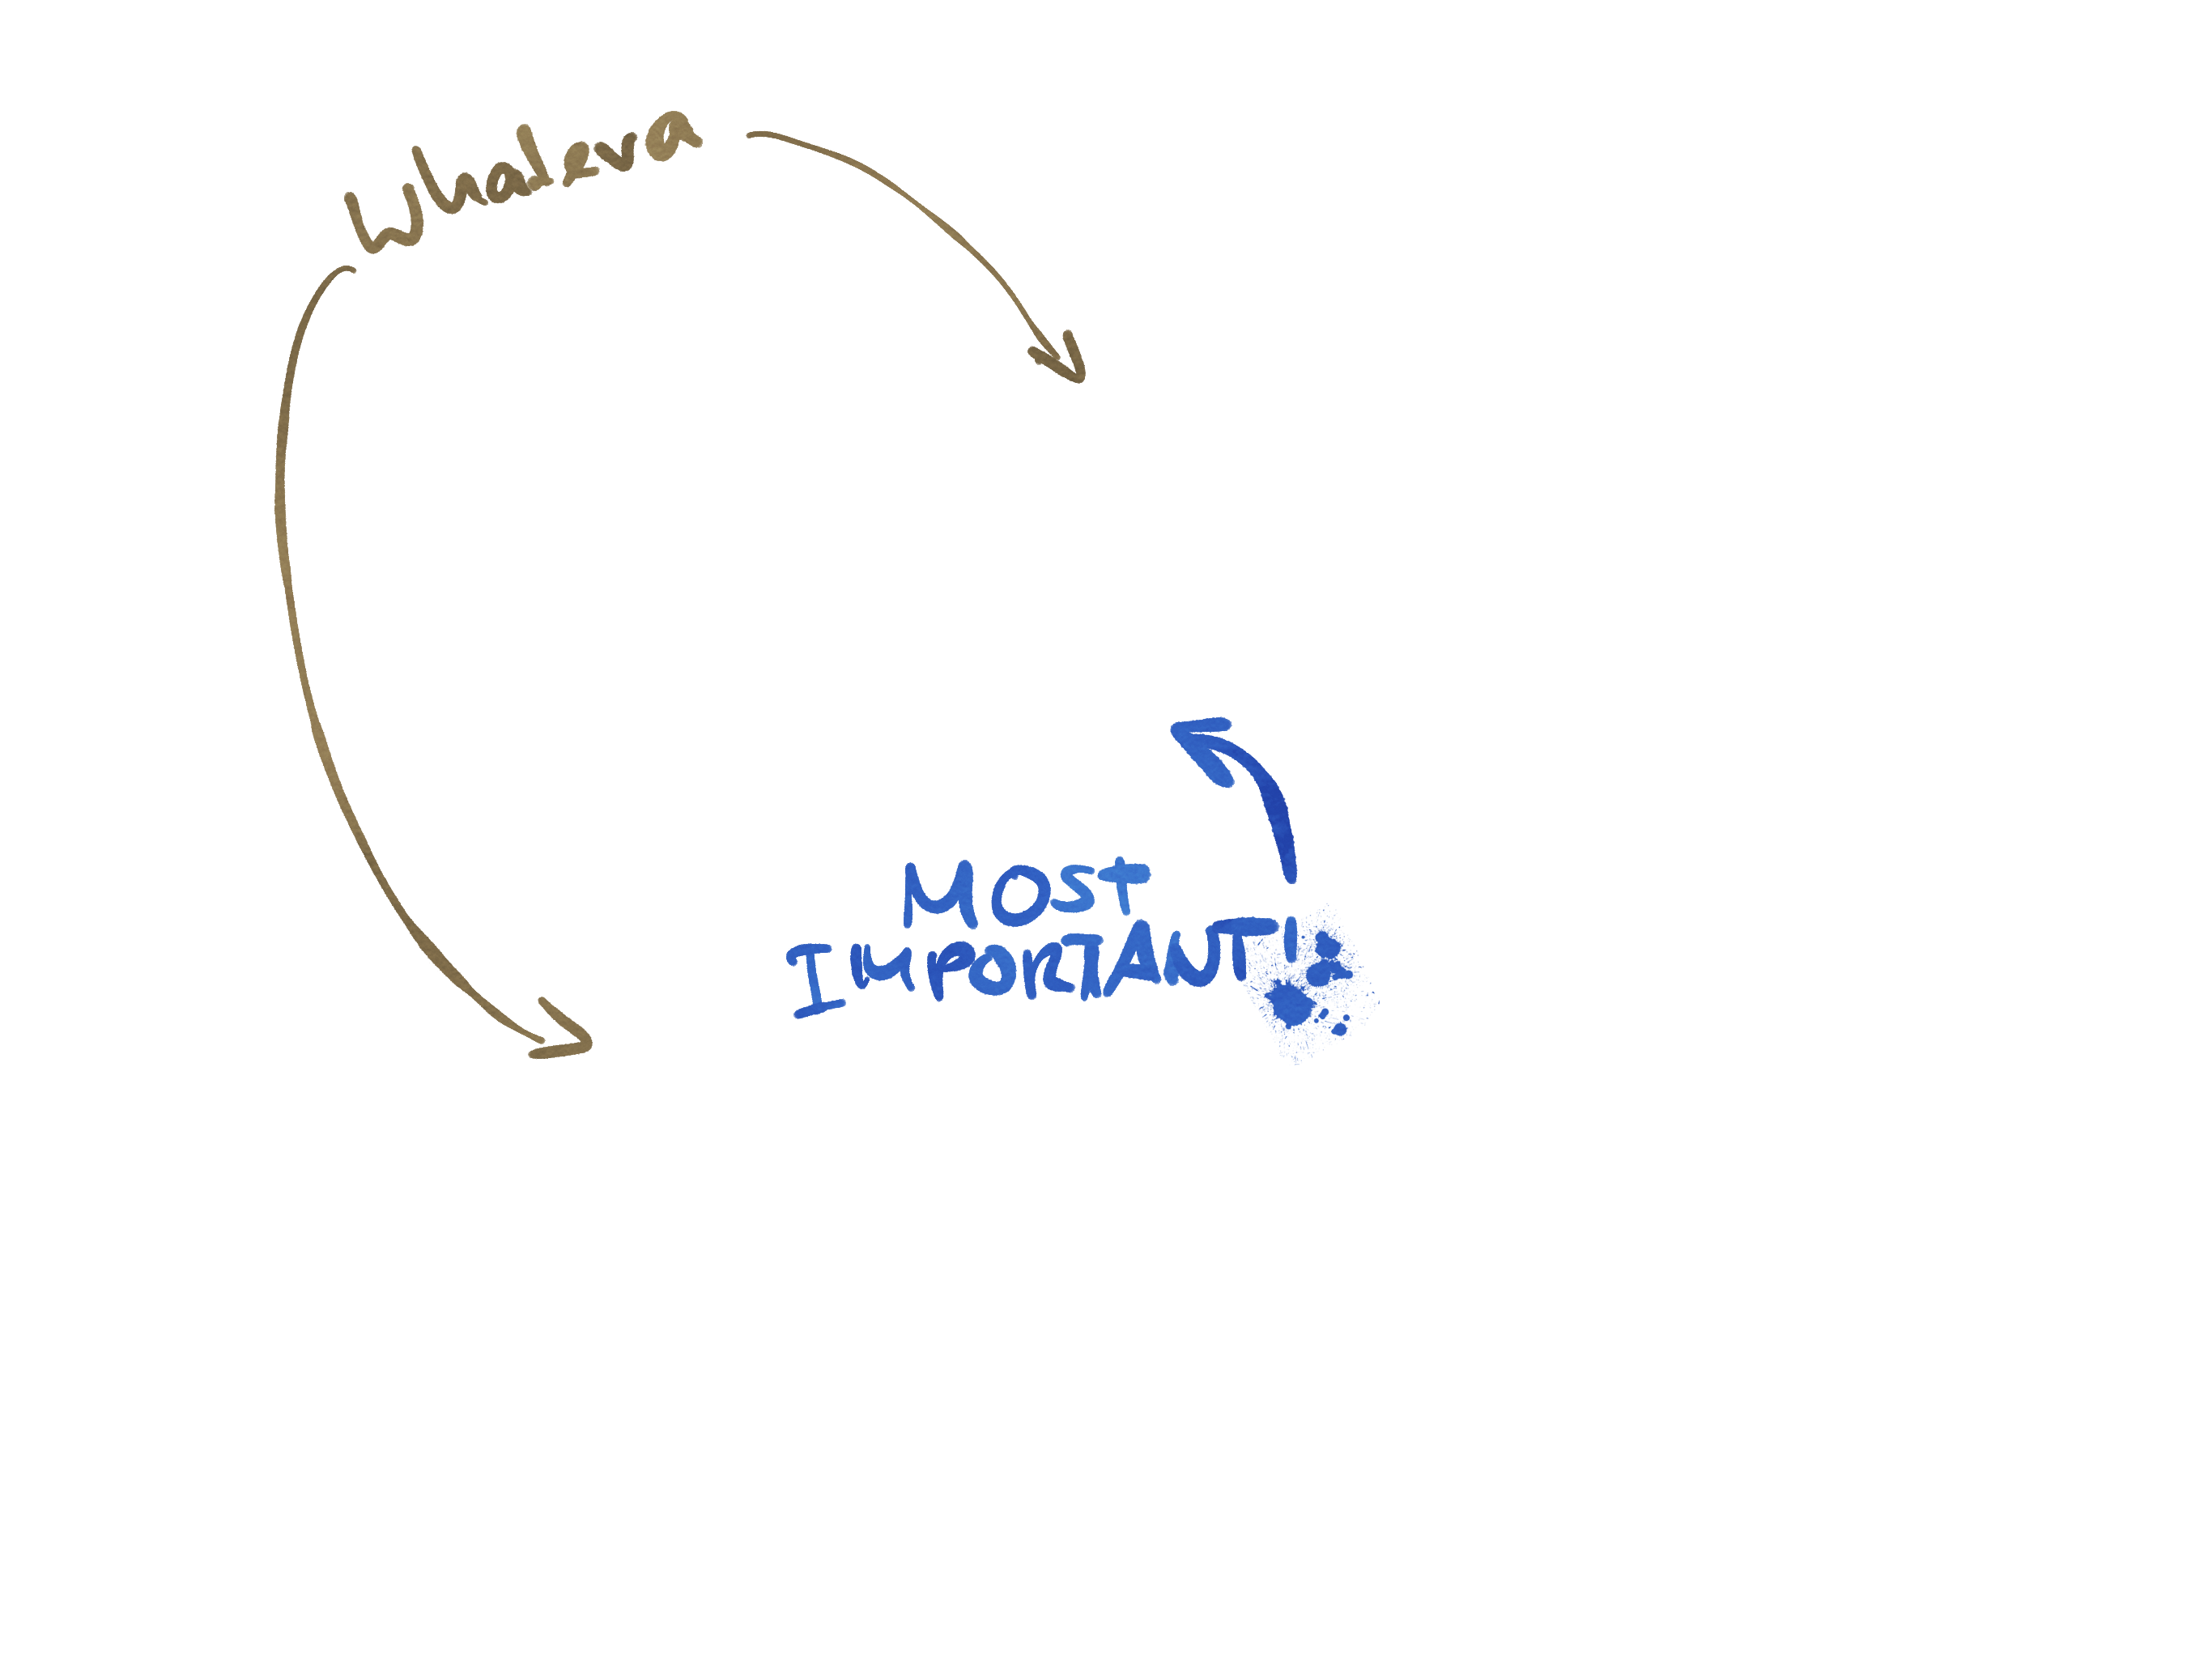 Whateva
MOST
IMPORTANT!